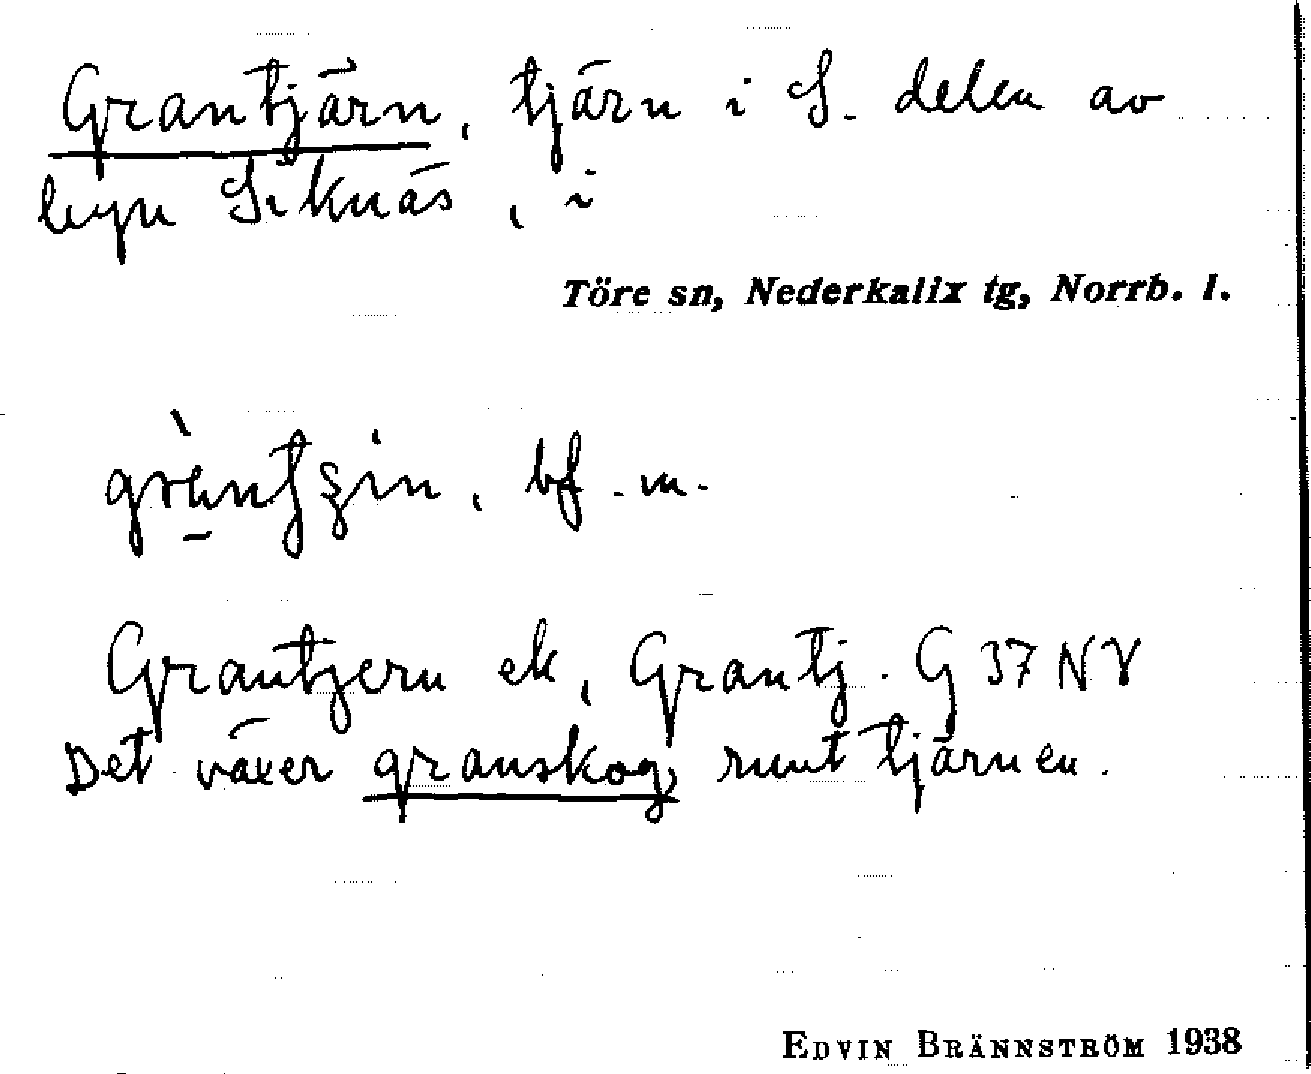 Grantjärn, tjärn i S. delen av
byn Siknäs, i
Töre sn, Nederkalix tg, Norrb. l.
bf. m.
Grantjern ek, Grantj. G 37 NV
Det växer granskog runt tjärnen.
EDVIN BRÄNNSTRÖM 1938